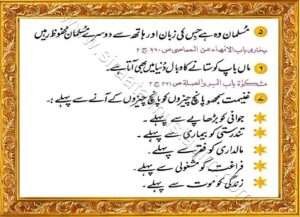 ۵ مسلمان وہ ہے جس کی زبان اور ہاتھ سے دوسرے مسلمان محفوظ رہیں
بخاری باب الانتهاء عن المعاصی ص ۹۶۰ ج ۲
۶ ماں باپ کو ستانے کا وبال دُنیا میں بھی آتا ہے
مشکوٰۃ باب البر والصلة ص ۴۲۱ ج ۲
غنیمت سمجھو پانچ چیزوں کو پانچ چیزوں کے آنے سے پہلے :
جوانی کو بڑھاپے سے پہلے ۔
تندرستی کو بیماری سے پہلے ۔
مالداری کو فقر سے پہلے ۔
فراغت کو مشغولی سے پہلے ۔
زندگی کو موت سے پہلے ۔